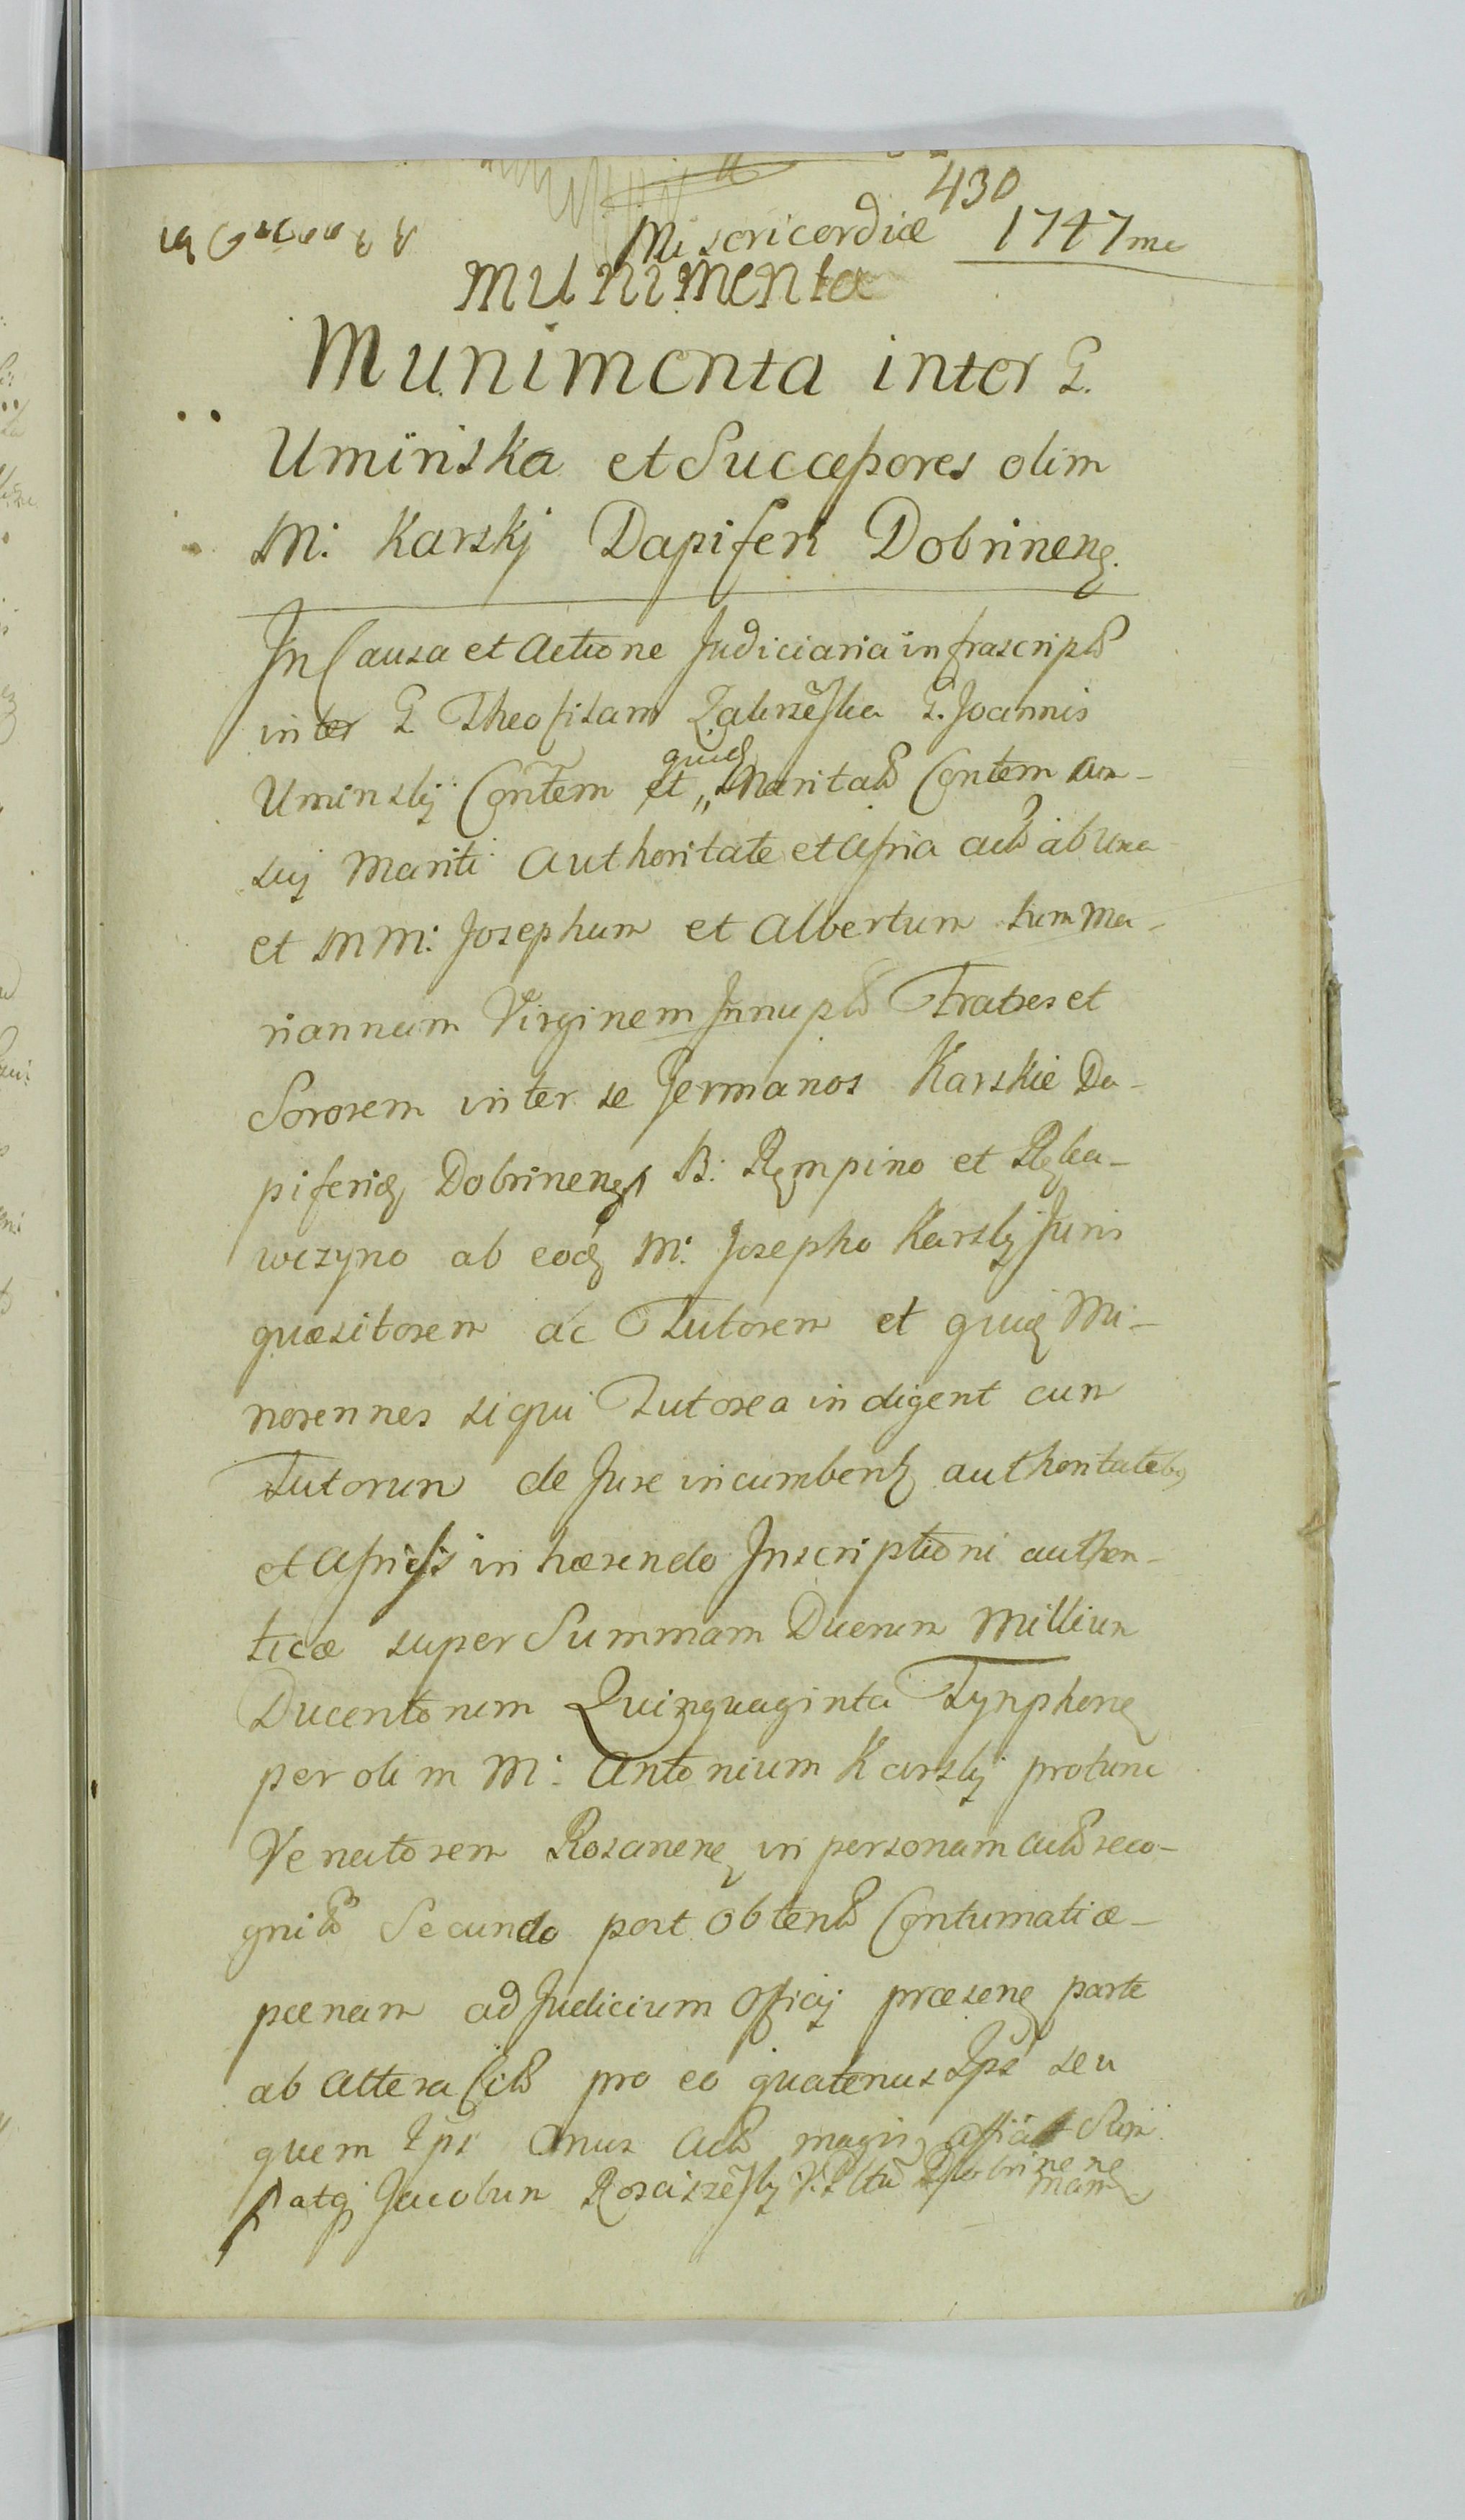 430
Misericordiæ 1747mo
munimenta
Munimenta inter G.
Uminska et Successores olim
M: Karskj Dapiferi Dobrinens.
In Causa et Actione Judiciaria infrascripta
inter G. Theofilam G. Joannis
Uminskij Contem et quid Marita Contem
sui Mariti Authoritate et Assia act ab una
et MM: Josephum et Albertum tum Ma-
riannam Virginem Innupt Fratres et
Sororem inter se Germanos Karskie Da-
piferid Dobrinens B: Rempino et
wczyno ab eod M: Josepho Karskij Juris
quæsitorem ac Tutorem et quid Mi-
norennes siqui Tutorea indigent cum
Tutorum de Jure incumbent authoritateb9
et inhærendo Inscriptioni authen-
ticæ super Summam Duorum Millium
Ducentorum Quinquaginta Tynphon
per olim M: Antonium Karskij protunc
Venatorem Rosanen in personam act reco-
gnit Secundo post obtent Contumatiæ-
pœnam ad Judicium Officij præsens parte
ab Altera Cit pro eo quatenus Ipsi seu
quem Ipsi Onus Act magis afficit
atq Jacobum